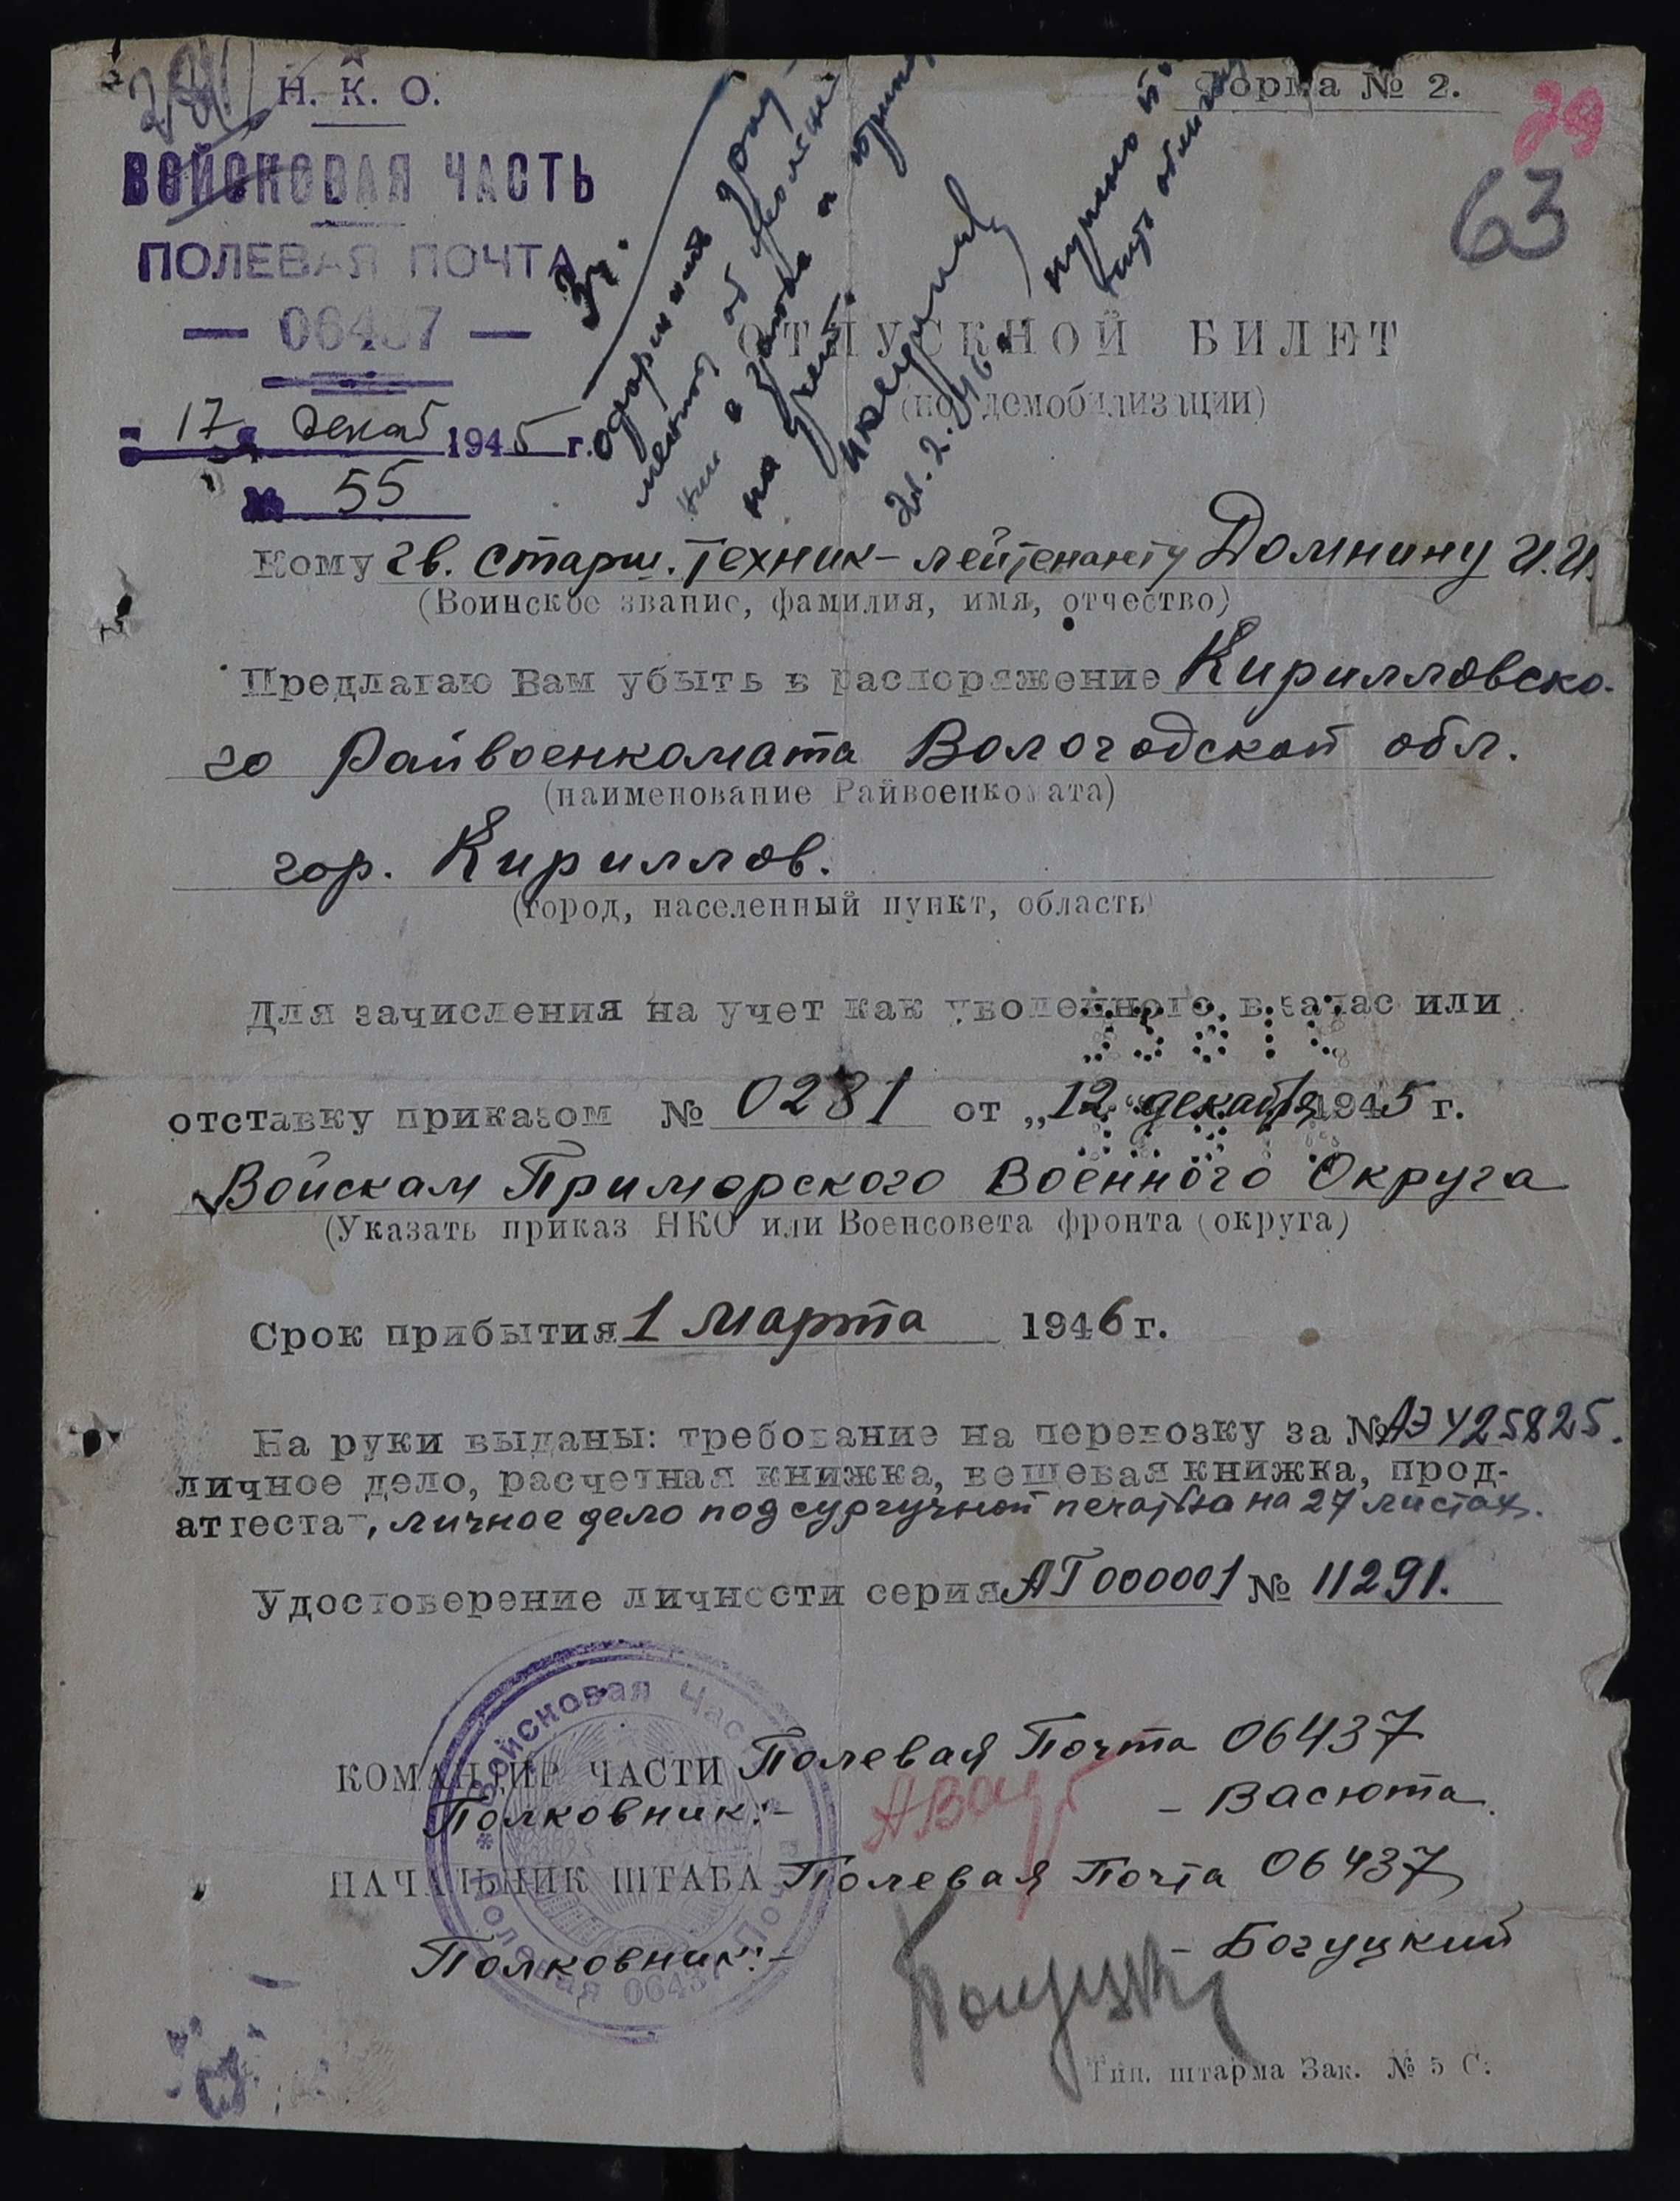 Н. К. О.
Форма № 2.
29
63
ВОЙСКОВАЯ ЧАСТЬ
ПОЛЕВАЯ ПОЧТА
— 06437 —
"17" декаб 1945 г.
№ 55
на учет.
21.2.46
ОТПУСКНОЙ БИЛЕТ
(по демобилизации)
Кому гв. старш. техник-лейтенанту Домнину И.И.
(Воинское звание, фамилия, имя, отчество)
Предлагаю Вам убыть в распоряжение Кирилловско-
го Райвоенкомата Вологодской обл.
(наименование Райвоенкомата)
гор. Кириллов.
(город, населенный пункт, область)
Для зачисления на учет как уволенного в запас или
отставку приказом № 0281 от „12" декабря 1945 г.
Войскам Приморского Военного Округа
(Указать приказ НКО или Военсовета фронта (округа)
Срок прибытия 1 марта 1946 г.
На руки выданы: требование на перевозку за № АЭ 425825.
личное дело, расчетная книжка, вещевая книжка, прод-
аттестат, личное дело под сургучной печатью на 27 листах.
Удостоверение личности серия АГ 000001 № 11291.
Войсковая Часть * Полевая Почта 06437
КОМАНДИР ЧАСТИ Полевая Почта 06437
Полковник:- - Васюта.
НАЧАЛЬНИК ШТАБА Полевая Почта 06437
Полковник:- - Богуцкий
Тип. штарма Зак. № 5 С.